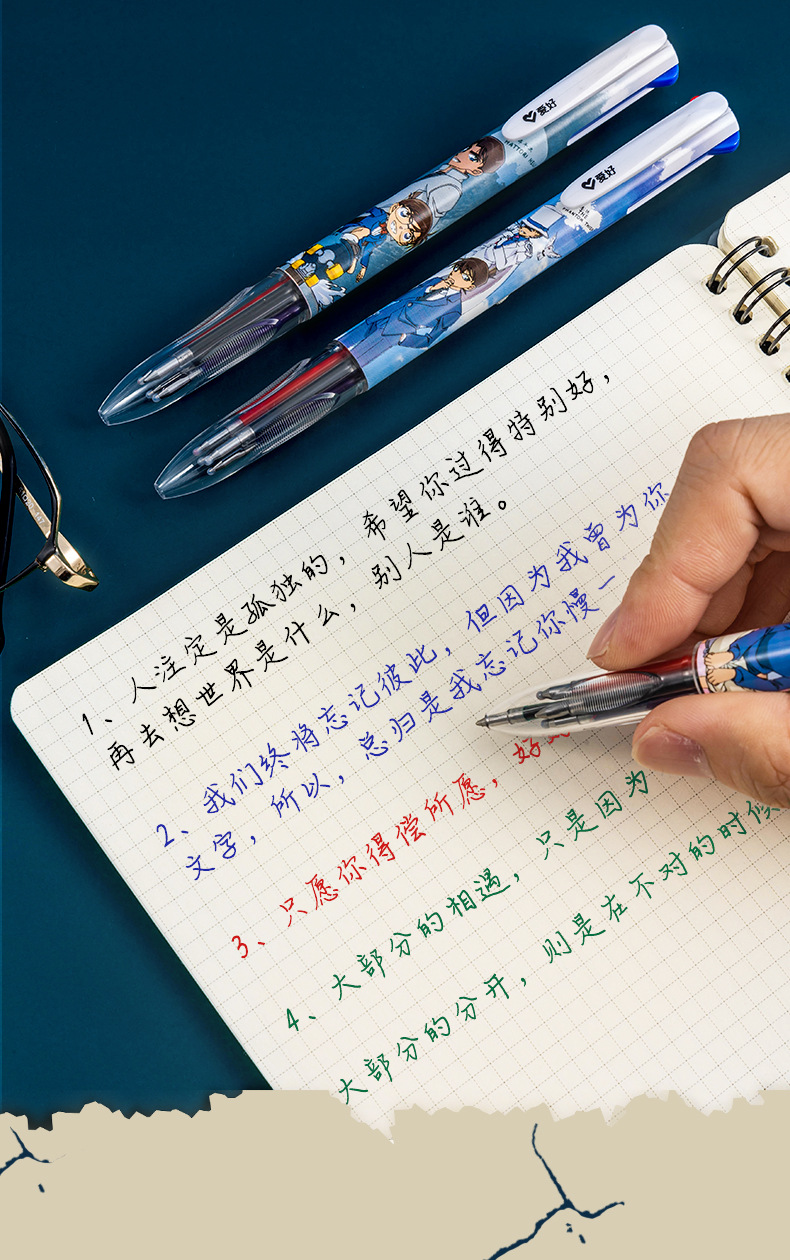 爱好
HATTORI
爱好
1、人注定是孤独的，希望你过得特别好，
再去想世界是什么，别人是谁。
2、我们终将忘记彼此，但因为我曾为你
文字，所以，总归是我忘记你慢一
3、只愿你得偿所愿，好
4、大部分的相遇，只是因为
大部分的分开，则是在不对的时候